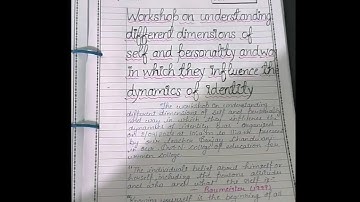 Workshop on understanding
different dimensions of
self and personality and wa
in which they influence the
dynamics of identity
The workshop on understanding
different dimensions of self and personality
and way in which they influence the
dynamics of identity was organised
on
by our teacher Sanjay
in our college of education for
women
"The individual's belief about himself or
herself, including the person's attitudes
and who and what the self is"
Baumeister (1999)
"Knowing yourself is the beginning of all